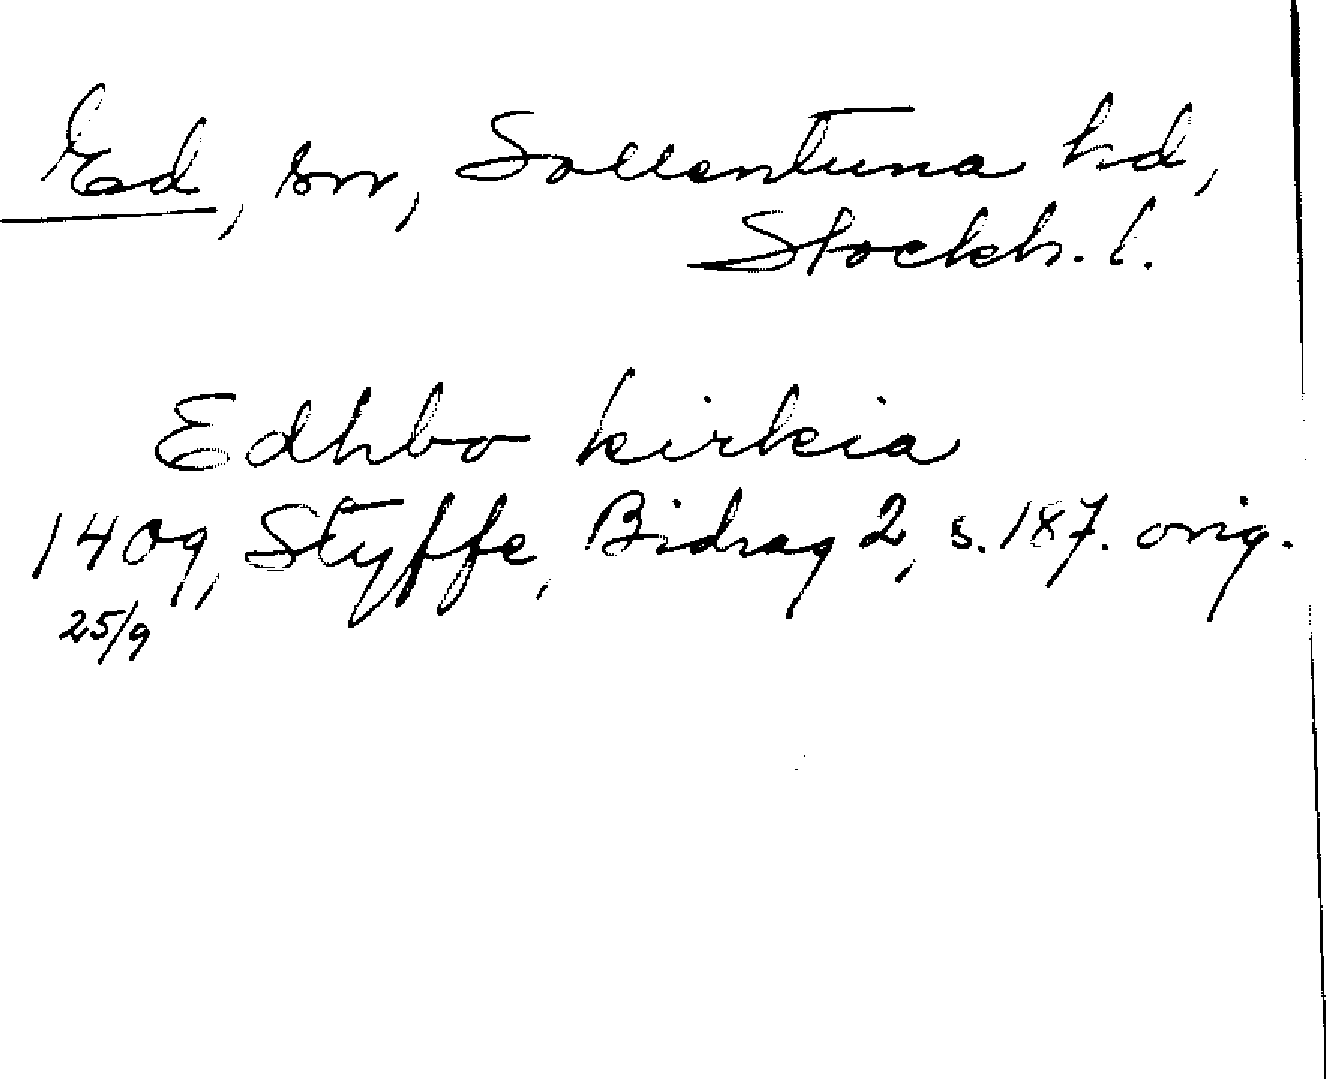 Ed, sn, Sollentuna hd,
Stockh. l.
Edhbo kirkia
1409, Styffe, Bidrag 2, s. 187. orig.
25/9